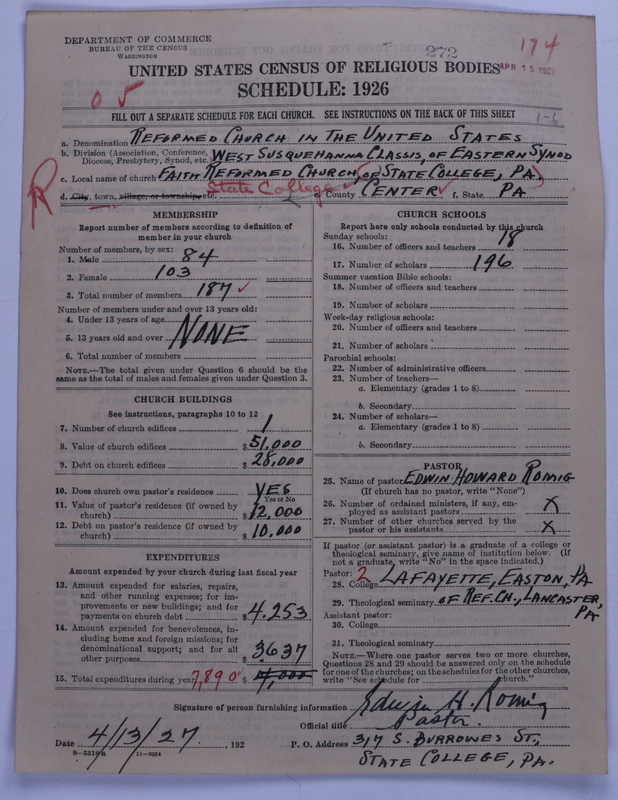 DEPARTMENT OF COMMERCE
BUREAU OF THE CENSUS
WASHINGTON
272
174
APR 15 1927
UNITED STATES CENSUS OF RELIGIOUS BODIES
SCHEDULE: 1926
05
FILL OUT A SEPARATE SCHEDULE FOR EACH CHURCH. SEE INSTRUCTIONS ON THE BACK OF THIS SHEET
1-6
a. Denomination REFORMED CHURCH IN THE UNITED STATES
b. Division (Association, Conference, Diocese, Presbytery, Synod, etc. WEST SUSQUEHANNA CLASSIS, OF EASTERN SYNOD
c. Local name of church FAITH REFORMED CHURCH (OF STATE COLLEGE, PA.)
R
d. City, town, village, or township, etc. State College e. County CENTER f. State PA
MEMBERSHIP
Report number of members according to definition of
member in your church
Number of members, by sex:
1. Male 84
2. Female 103
3. Total number of members 187
Number of members under and over 13 years old:
4. Under 13 years of age
5. 13 years old and over NONE
6. Total number of members
NOTE.—The total given under Question 6 should be
same as the total of males and females given under Question 3.
CHURCH BUILDINGS
See instructions, paragraphs 10 to 12
7. Number of church edifices 1
8. Value of church edifices $51,000
9. Debt on church edifices $28,000
10. Does church own pastor's residence YES
Yes or No
11. Value of pastor's residence (if owned by
church) $12,000
12. Debt on pastor's residence (if owned by
church) $10,000
EXPENDITURES
Amount expended by your church during last fiscal year
13. Amount expended for salaries, repairs,
and other running expenses; for im-
provements or new buildings; and for
payments on church debt $4,253
14. Amount expended for benevolences, in-
cluding home and foreign missions; for
denominational support; and for all
other purposes $3637
15. Total expenditures during year 7,890 $4,000
CHURCH SCHOOLS
Report here only schools conducted by this church
Sunday schools:
16. Number of officers and teachers 18
17. Number of scholars 196
Summer vacation Bible schools:
18. Number of officers and teachers
19. Number of scholars
Week-day religious schools:
20. Number of officers and teachers
21. Number of scholars
Parochial schools:
22. Number of administrative officers
23. Number of teachers—
a. Elementary (grades 1 to 8)
b. Secondary
24. Number of scholars—
a. Elementary (grades 1 to 8)
b. Secondary
PASTOR
25. Name of pastor EDWIN HOWARD ROMIG
(If church has no pastor, write "None")
26. Number of ordained ministers, if any, em-
ployed as assistant pastors X
27. Number of other churches served by the
pastor or his assistants X
If pastor (or assistant pastor) is a graduate of a college or
theological seminary, give name of institution below. (If
not a graduate, write "No" in the space indicated.)
Pastor: 2
28. College LAFAYETTE, EASTON, PA
29. Theological seminary OF REF. CH., LANCASTER, PA
Assistant pastor:
30. College
31. Theological seminary
NOTE.—Where one pastor serves two or more churches,
Questions 28 and 29 should be answered only on the schedule
for one of the churches; on the schedules for the other churches,
write "See schedule for church."
Signature of person furnishing information Edwin H. Romig
Official title Pastor.
Date 4/13/27, 192
P. O. Address 317 S. BURROWES ST.,
STATE COLLEGE, PA.
11-9064